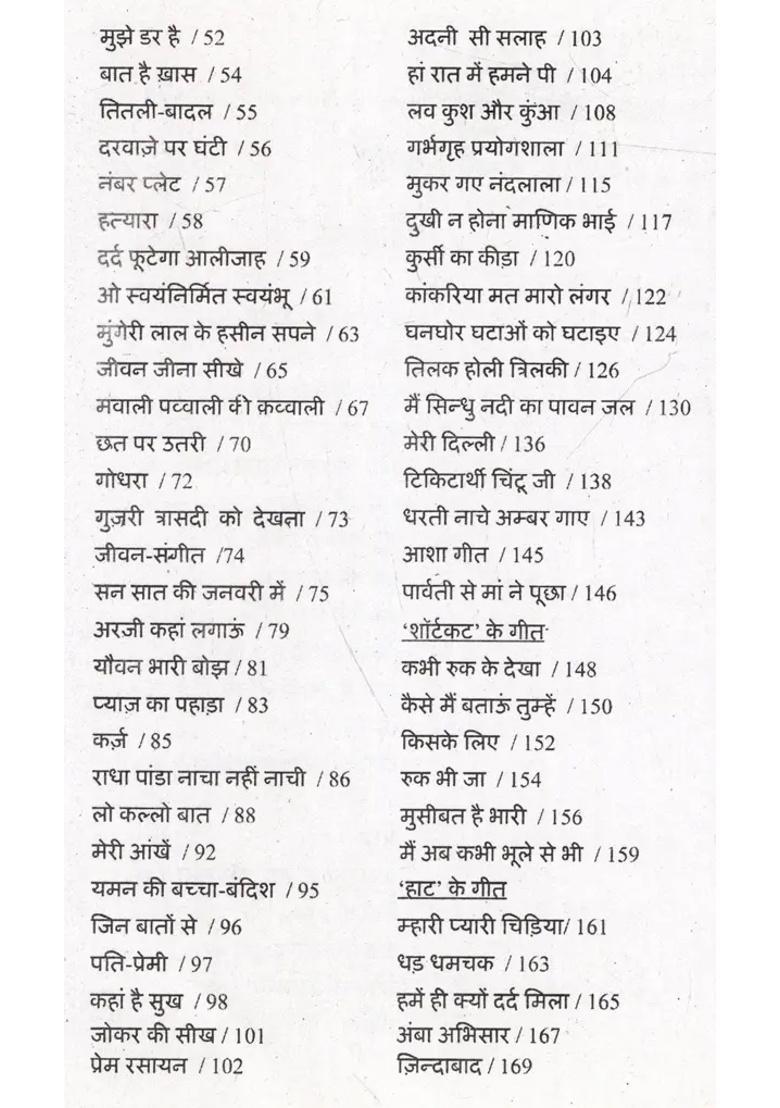 मुझे डर है / 52
बात है ख़ास / 54
तितली-बादल / 55
दरवाज़े पर घंटी / 56
नंबर प्लेट / 57
हत्यारा / 58
दर्द फूटेगा आलीजाह / 59
ओ स्वयंनिर्मित स्वयंभू / 61
मुंगेरी लाल के हसीन सपने / 63
जीवन जीना सीखे / 65
मवाली पव्वाली की क़व्वाली / 67
छत पर उतरी / 70
गोधरा / 72
गुज़री त्रासदी को देखता / 73
जीवन-संगीत /74
सन सात की जनवरी में / 75
अरजी कहां लगाऊं / 79
यौवन भारी बोझ / 81
प्याज़ का पहाड़ा / 83
कर्ज़ / 85
राधा पांडा नाचा नहीं नाची / 86
लो कल्लो बात / 88
मेरी आंखें / 92
यमन की बच्चा-बंदिश / 95
जिन बातों से / 96
पति-प्रेमी / 97
कहां है सुख / 98
जोकर की सीख / 101
प्रेम रसायन / 102
अदनी सी सलाह / 103
हां रात में हमने पी / 104
लव कुश और कुंआ / 108
गर्भगृह प्रयोगशाला / 111
मुकर गए नंदलाला / 115
दुखी न होना माणिक भाई / 117
कुर्सी का कीड़ा / 120
कांकरिया मत मारो लंगर / 122
घनघोर घटाओं को घटाइए / 124
तिलक होली त्रिलकी / 126
मैं सिन्धु नदी का पावन जल / 130
मेरी दिल्ली / 136
टिकिटार्थी चिंटू जी / 138
धरती नाचे अम्बर गाए / 143
आशा गीत / 145
पार्वती से मां ने पूछा / 146
‘शॉर्टकट’ के गीत
कभी रुक के देखा / 148
कैसे मैं बताऊं तुम्हें / 150
किसके लिए / 152
रुक भी जा / 154
मुसीबत है भारी / 156
मैं अब कभी भूले से भी / 159
‘हाट’ के गीत
म्हारी प्यारी चिड़िया/ 161
धड़ धमचक / 163
हमें ही क्यों दर्द मिला / 165
अंबा अभिसार / 167
ज़िन्दाबाद / 169